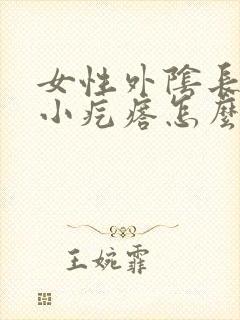 女性外陰長
小疙瘩怎麼
王婉霏